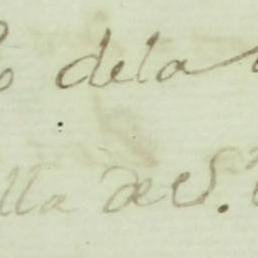 dela
lla de S.